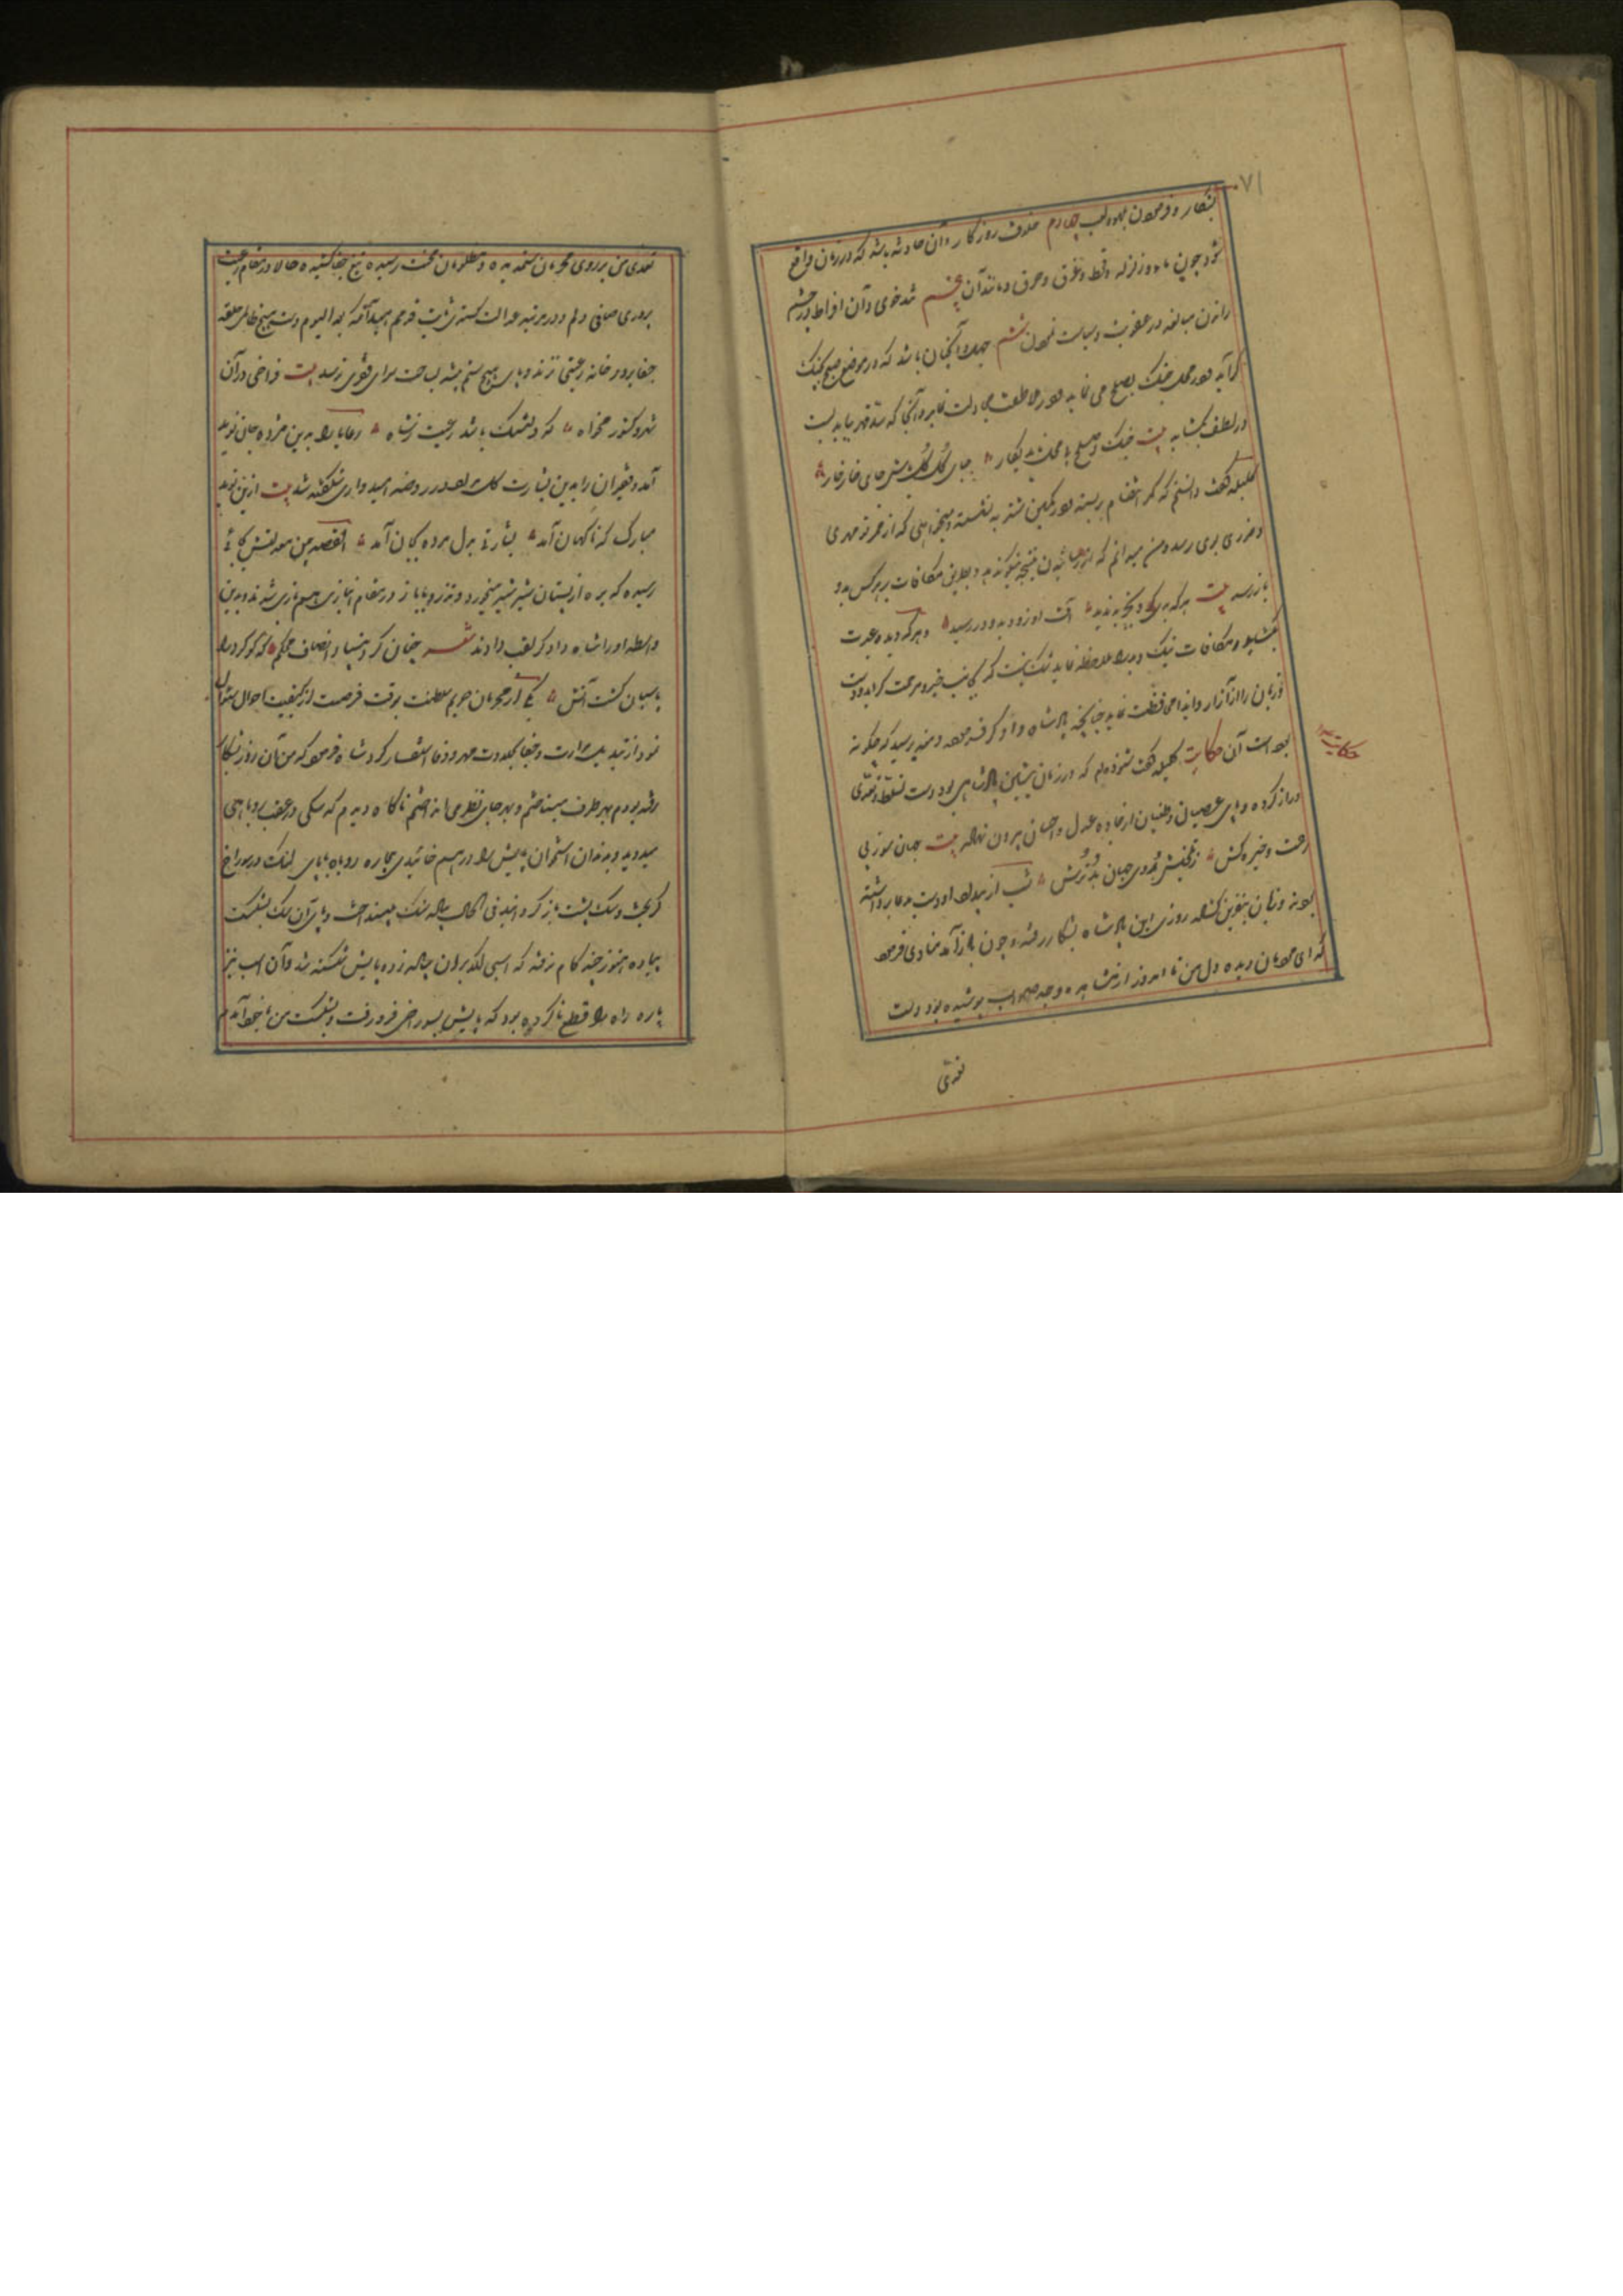 ۷۱
بشکار و فرمودن بلهو و لعب چهارم خلاف روزگار و آن حادثه باشد که در زمان واقع
شود چون وبا و زلزله و قحط و غرق و حرق و مانند آن پنجم تندخوی و آن افراط در خشم
راندن مبالغه در عقوبت و سیاست نمودن ششم جهل و آنچنان باشد که در موضع صلح بجنگ
گراید و در محل جنگ بصلح می نماید و در ملاطفت مجادلت نماید و آنجا که سد قهر باید بست
در لطف بگشاید بیت جنگ و صلح بی محل ناید بکار جای گل گل باش جای خار خار
کلیله گفت دانستم که کمر انتقام بسته و در کمین شنزبه نشسته و میخواهی که از ممر تو
و ضرری بوی رسد و من میدانم که ضرر رسانیدن نتیجه نیکو ندهد و بطریق مکافات بهر کس بدو
باز رسد بیت هر که بدی کرد و بجز بد ندید آفت او زود بدو در رسید و هر که دیده عبرت
بگشاید و مکافات نیک و بد را ملاحظه نماید شک نیست که بجانب خیر و مرحمت گراید و دست
و زبان را از آزار و ایذا محافظت نماید چنانچه پادشاه دادگر فرموده دمنه پرسید که چگونه
حکایت
بوده است آن حکایت کلیله گفت شنوده ام که در زمان پیشین پادشاهی بود دست تسلط و تعدی
دراز کرده و پای عصیان و طغیان از جاده عدل و احسان بیرون نهاده بیت جهان سوز بی
رحمت و خیره کش ز تلخیش روی جهان ترش شب از بیداد او دست بدعا برداشته
بودند و زبان بنفرین گشاده روزی این پادشاه بشکار رفته و چون باز آمد منادی فرمود
که ای مردمان دیده دل من تا امروز از مشاهده وجه صواب پوشیده بود و دست
تعدی
تعدی من بر روی محرومان ستمدیده و مظلومان محنت رسیده تیغ جفا کشیده حالا در مقام رعیت
پروری صافی دلم و در مرتبه عدالت گستری ثابت قدم امید آنکه بعد الیوم دست هیچ ظالم حلقه
جفا بر در خانه رعیتی نزند و پای هیچ ستم پیشه بساحت سرای فقیری نرسد بیت فراخی در آن
شهر و کشور مخواه که دلتنگ باشد رعیت ز شاه رعایا را بدین مژده جانی نو پدید
آمد و فقیران را بدین بشارت گل مراد در روضه امیدواری شکفته شد بیت ازین نوید
مبارک که ناگهان آمد بشارتی بدل مرده بجان آمد القصه یمن معدلتش بجائی
رسیده که بره از پستان شیر شیر میخورد و تذرو با باز در مقام انبازی هم بازی شدند و بدین
واسطه او را شاه دادگر لقب دادند شعر چنان کرد بنیاد انصاف محکم که گوگرد را
پاسبان گشت آتش یکی از محرمان حریم سلطنت بوقت فرصت از کیفیت احوال سؤال
نمود از تبدیل مرارت و جفا بحلاوت مهر و وفا استفسار کرد شاه فرمود که من آن روز بشکار
رفته بودم بهر طرف میتاختم و بهر جای نظری می انداختم ناگاه دیدم که سگی در عقب روباهی
میدوید و بدندان استخوان پایش را در هم خائید بیچاره روباه با پای لنگ در سوراخ
گریخت و سگ پشت باز گردانید فی الحال پیاده سنگ بینداخت و پای آن سگ بشکست
پیاده هنوز چند گام نرفته که اسبی لگد بر آن پیاده زده پایش شکسته شد و آن اسب نیز
پاره راه را قطع ناکرده بود که پایش بسوراخی فرو رفت و بشکست من بخود آمدم